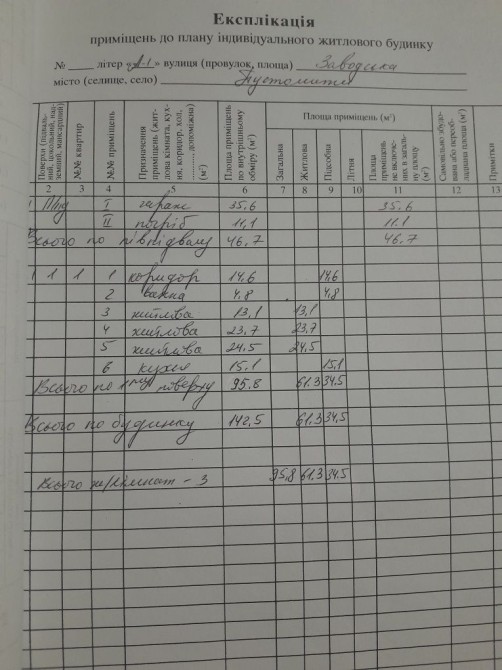 Експлікація
приміщень до плану індивідуального житлового будинку
№ літер «А-1» вулиця (провулок, площа) Заводська
місто (селище, село) Пустомити
Поверхи (підвальний, цокольний, надземний, мансардний) №№ квартир №№ приміщень Призначення приміщень (житлова кімната, кухня, коридор, хол, ........... допоміжна) (м²) Площа приміщень по внутрішньому обміру (м²) Площа приміщень (м²)
Загальна Житлова Підсобна Літня Площа приміщень не включених в загальну площу (м²) Самовільно збудована або переобладнана площа (м²) Примітки
2 3 4 5 6 7 8 9 10 11 12 13
I гараж 35,6 35.6
II погріб 11,1 11.1
Всього по півпідвалу 46,7 46.7
1 1 1 1 коридор 14,6 14,6
2 ванна 4,8 4,8
3 житлова 13,1 13,1
4 житлова 23,7 23,7
5 житлова 24,5 24,5
6 кухня 15,1 15,1
Всього по 1му поверху 95,8 61.3 34,5
Всього по будинку 142,5 61.3 34,5
Всього ж/кімнат - 3 95,8 61,3 34,5